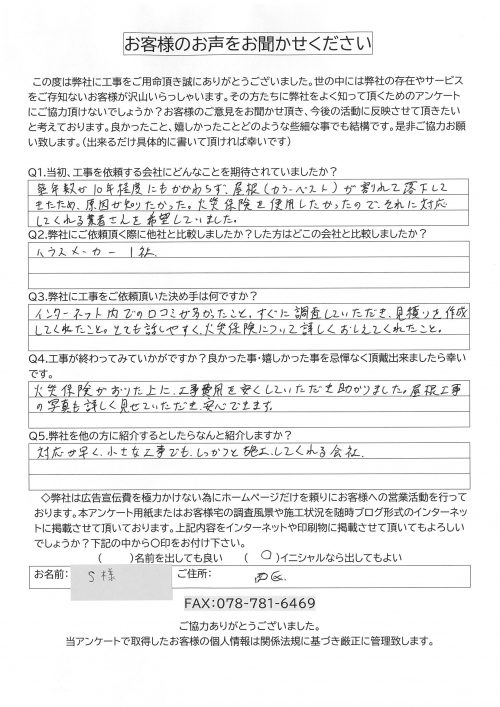 お客様のお声をお聞かせください
この度は弊社に工事をご用命頂き誠にありがとうございました。世の中には弊社の存在やサービス
をご存知ないお客様が沢山いらっしゃいます。その方たちに弊社をよく知って頂くためのアンケート
にご協力頂けないでしょうか？お客様のご意見をお聞かせ頂き、今後の活動に反映させて頂きたい
と考えております。良かったこと、嬉しかったことどのような些細な事でも結構です。是非ご協力お願
い致します。（出来るだけ具体的に書いて頂ければ幸いです）
Q1.当初、工事を依頼する会社にどんなことを期待されていましたか？
築年数が10年程度にもかかわらず、屋根（カラーベスト）が割れて落下して
きたため、原因が知りたかった。火災保険を使用したかったので、それに対応
してくれる業者さんを希望していました。
Q2.弊社にご依頼頂く際に他社と比較しましたか？した方はどこの会社と比較しましたか？
ハウスメーカー 1社
Q3.弊社に工事をご依頼頂いた決め手は何ですか？
インターネット内での口コミが多かったこと。すぐに調査していただき、見積りを作成
してくれたこと。とても話しやすく、火災保険について詳しくおしえてくれたこと。
Q4.工事が終わってみていかがですか？良かった事・嬉しかった事を忌憚なく頂戴出来ましたら幸い
です。
火災保険がおりた上に、工事費用を安くしていただき助かりました。屋根工事
の写真も詳しく見せていただき、安心できます。
Q5.弊社を他の方に紹介するとしたらなんと紹介しますか？
対応が早く、小さな工事でも、しっかりと施工してくれる会社
◇弊社は広告宣伝費を極力かけない為にホームページだけを頼りにお客様への営業活動を行って
おります。本アンケート用紙またはお客様宅の調査風景や施工状況を随時ブログ形式のインターネッ
トに掲載させて頂いております。上記内容をインターネットや印刷物に掲載させて頂いてもよろしい
でしょうか？下記の中から〇印をお付け下さい。
（ ）名前を出しても良い （ 〇 ）イニシャルなら出してもよい
お名前： S様 ご住所： 西区
FAX:078-781-6469
ご協力ありがとうございました。
当アンケートで取得したお客様の個人情報は関係法規に基づき厳正に管理致します。